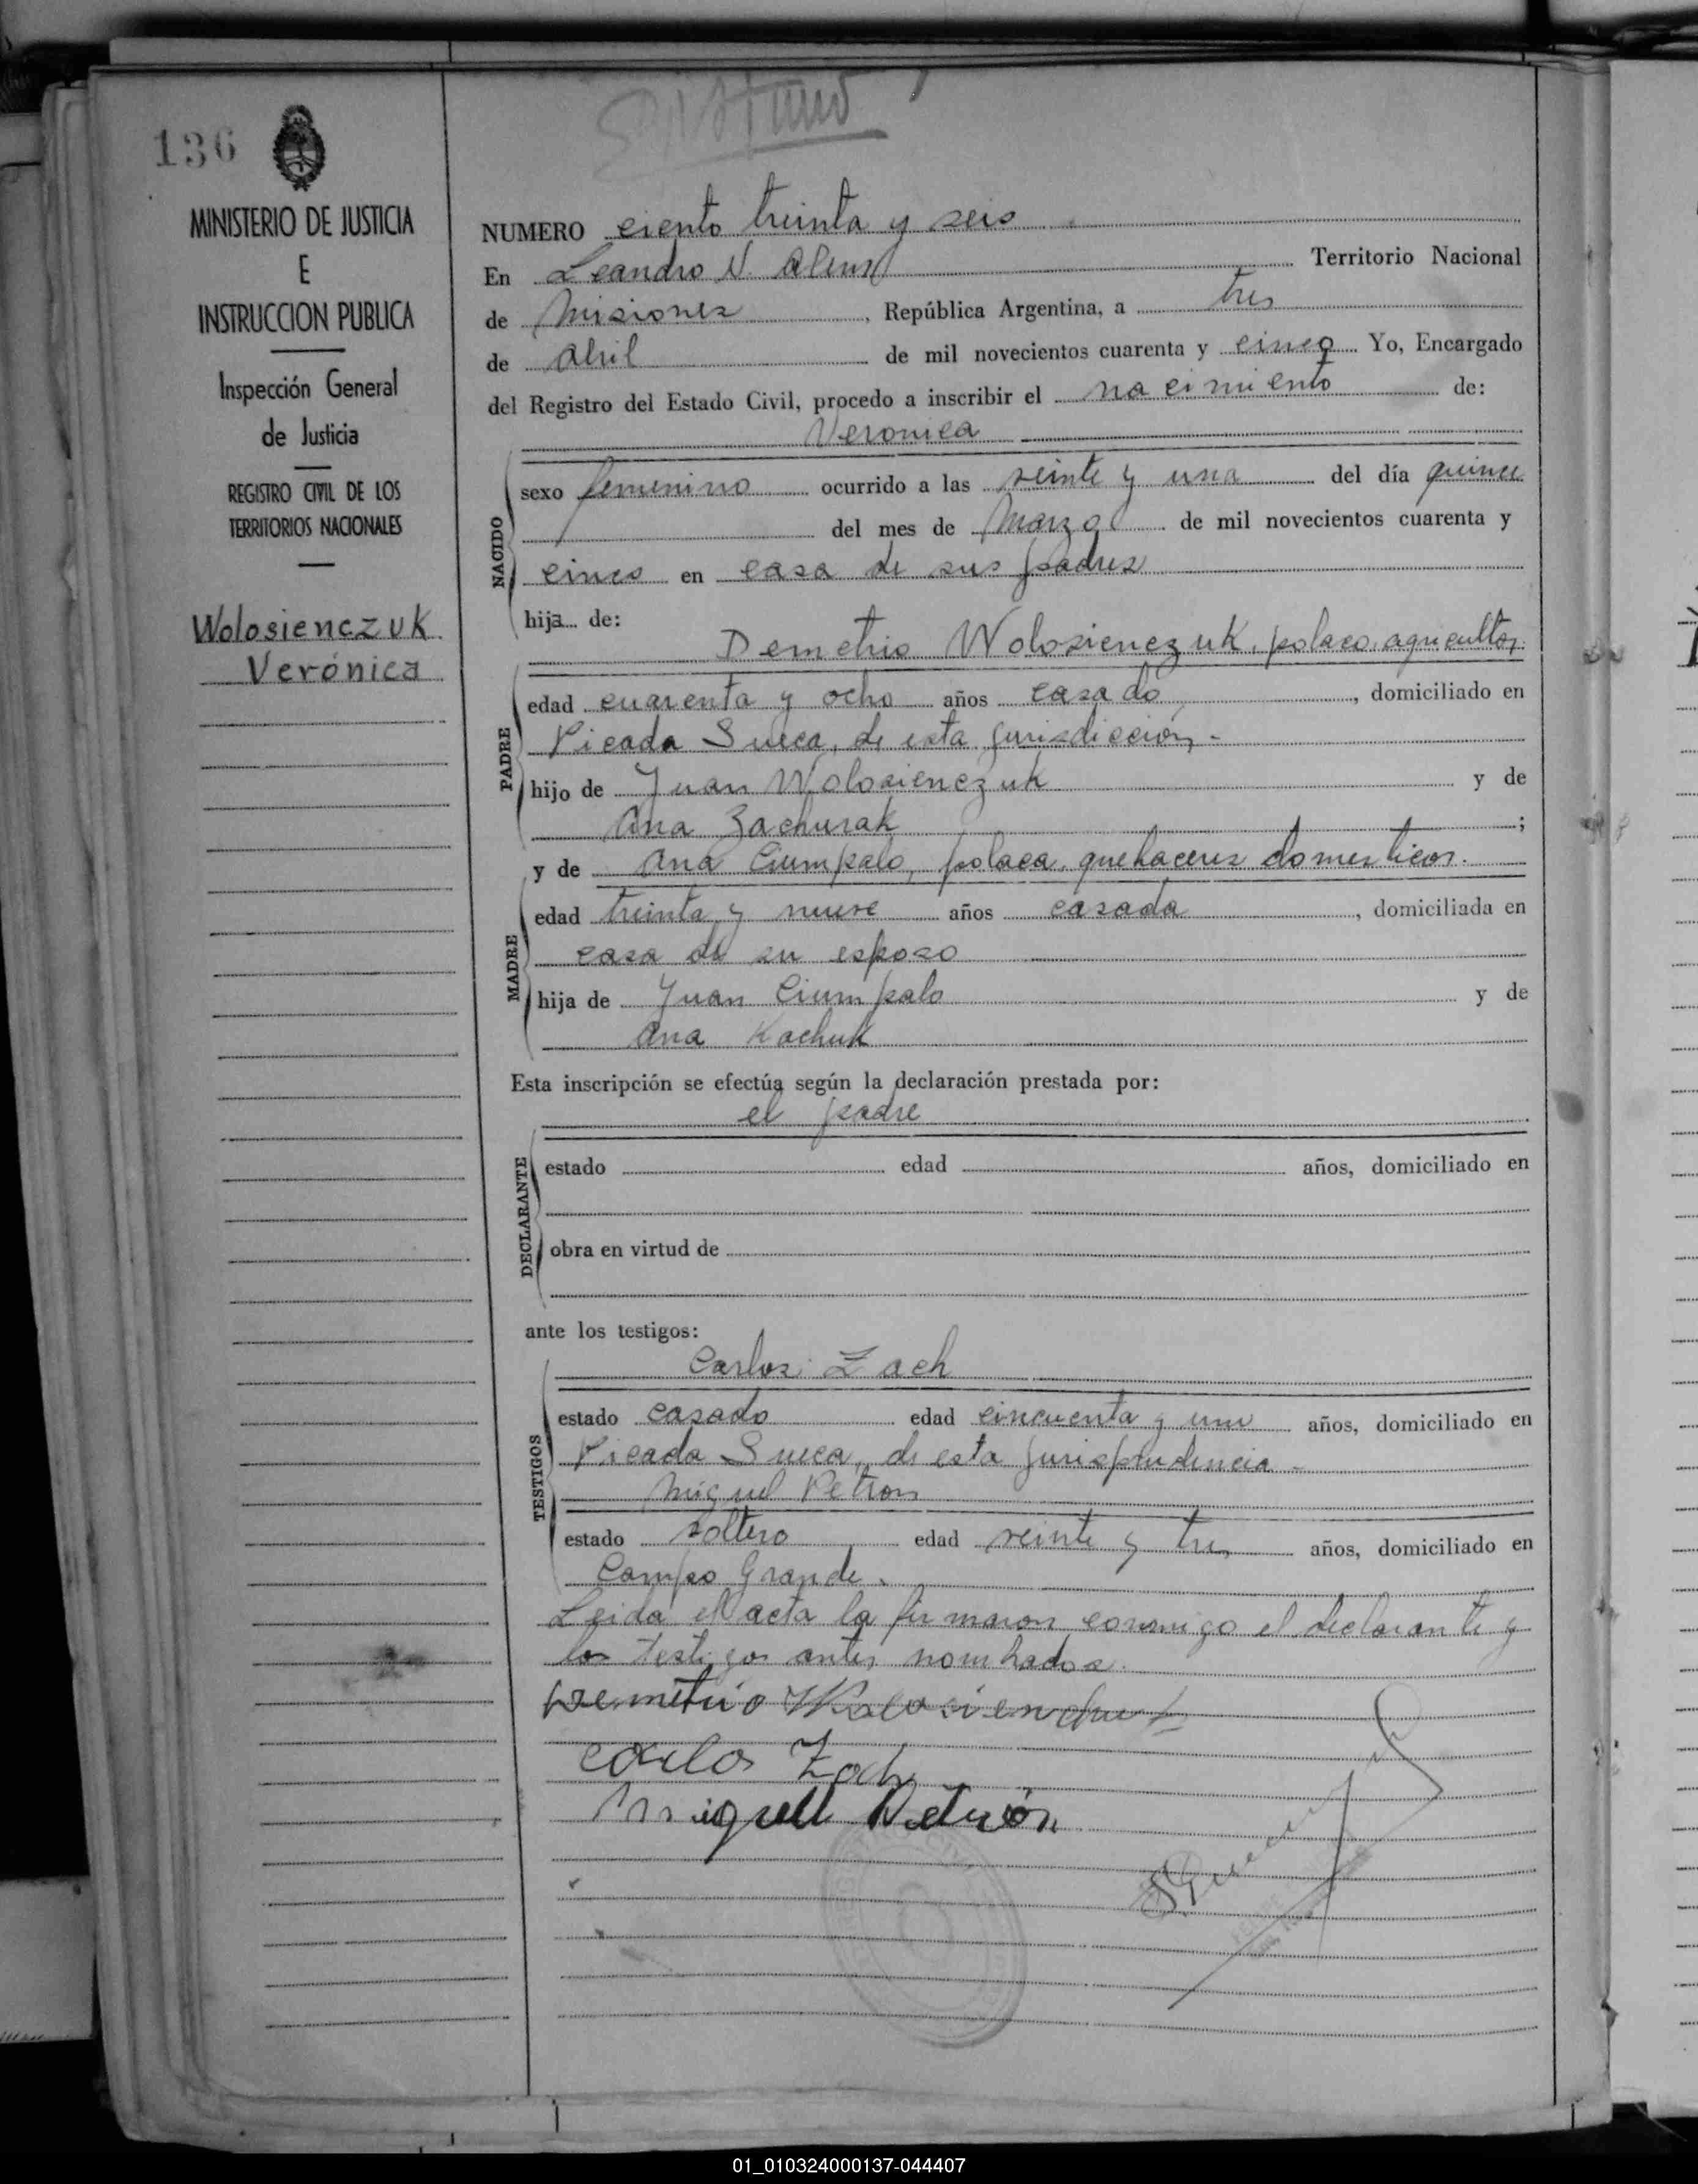 136
MINISTERIO DE JUSTICIA
E
INSTRUCCION PUBLICA
Inspección General
de Justicia
REGISTRO CIVIL DE LOS
TERRITORIOS NACIONALES
Wolosienczuk
Verónica
NUMERO ciento treinta y seis
En Leandro N. Alem Territorio Nacional
de Misiones, República Argentina, a tres
de Abril de mil novecientos cuarenta y cinco Yo, Encargado
del Registro del Estado Civil, procedo a inscribir el nacimiento de:
Veronica
NACIDO
sexo femenino ocurrido a las veinte y una del día quince
del mes de Marzo de mil novecientos cuarenta y
cinco en casa de sus padres
hija de:
Demetrio Wolosienczuk, polaco, agricultor.
PADRE
edad cuarenta y ocho años casado, domiciliado en
Picada Sueca, de esta jurisdicción.-
hijo de Juan Wolosienczuk y de
Ana Zachurak;
y de Ana Ciumpalo, polaca, quehaceres domesticos.
MADRE
edad treinta y nueve años casada, domiciliada en
casa de su esposo
hija de Juan Ciumpalo y de
Ana Kachuk
Esta inscripción se efectúa según la declaración prestada por:
el padre
DECLARANTE
estado edad años, domiciliado en
obra en virtud de
ante los testigos:
Carlos Zach
TESTIGOS
estado casado edad cincuenta y uno años, domiciliado en
Picada Sueca, de esta jurisprudencia -
Miguel Petron
estado soltero edad veinte y tres años, domiciliado en
Campo Grande.
Leida el acta la firmaron conmigo el declarante y
los testigos antes nombrados.
Demitrio Wolosienchuk
Carlos Zach
Miguell Petrón
01_010324000137-044407